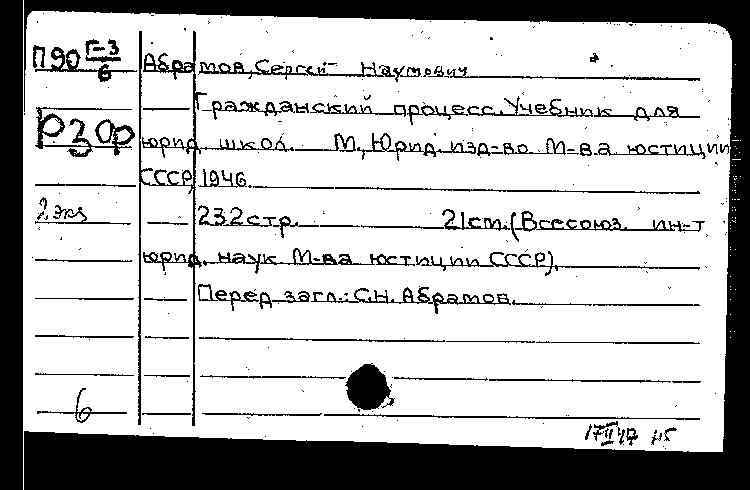 П90 Г-3/6 Абрамов, Сергей Наумович
Гражданский процесс. Учебник для
РЗОр юрид. школ. М., Юрид. изд-во М-ва юстиции
СССР, 1946.
2 экз 232 стр. 21 см. (Всесоюз. ин-т
юрид. наук М-ва юстиции СССР).
Перед загл.: С.Н. Абрамов.
6
17 II 47